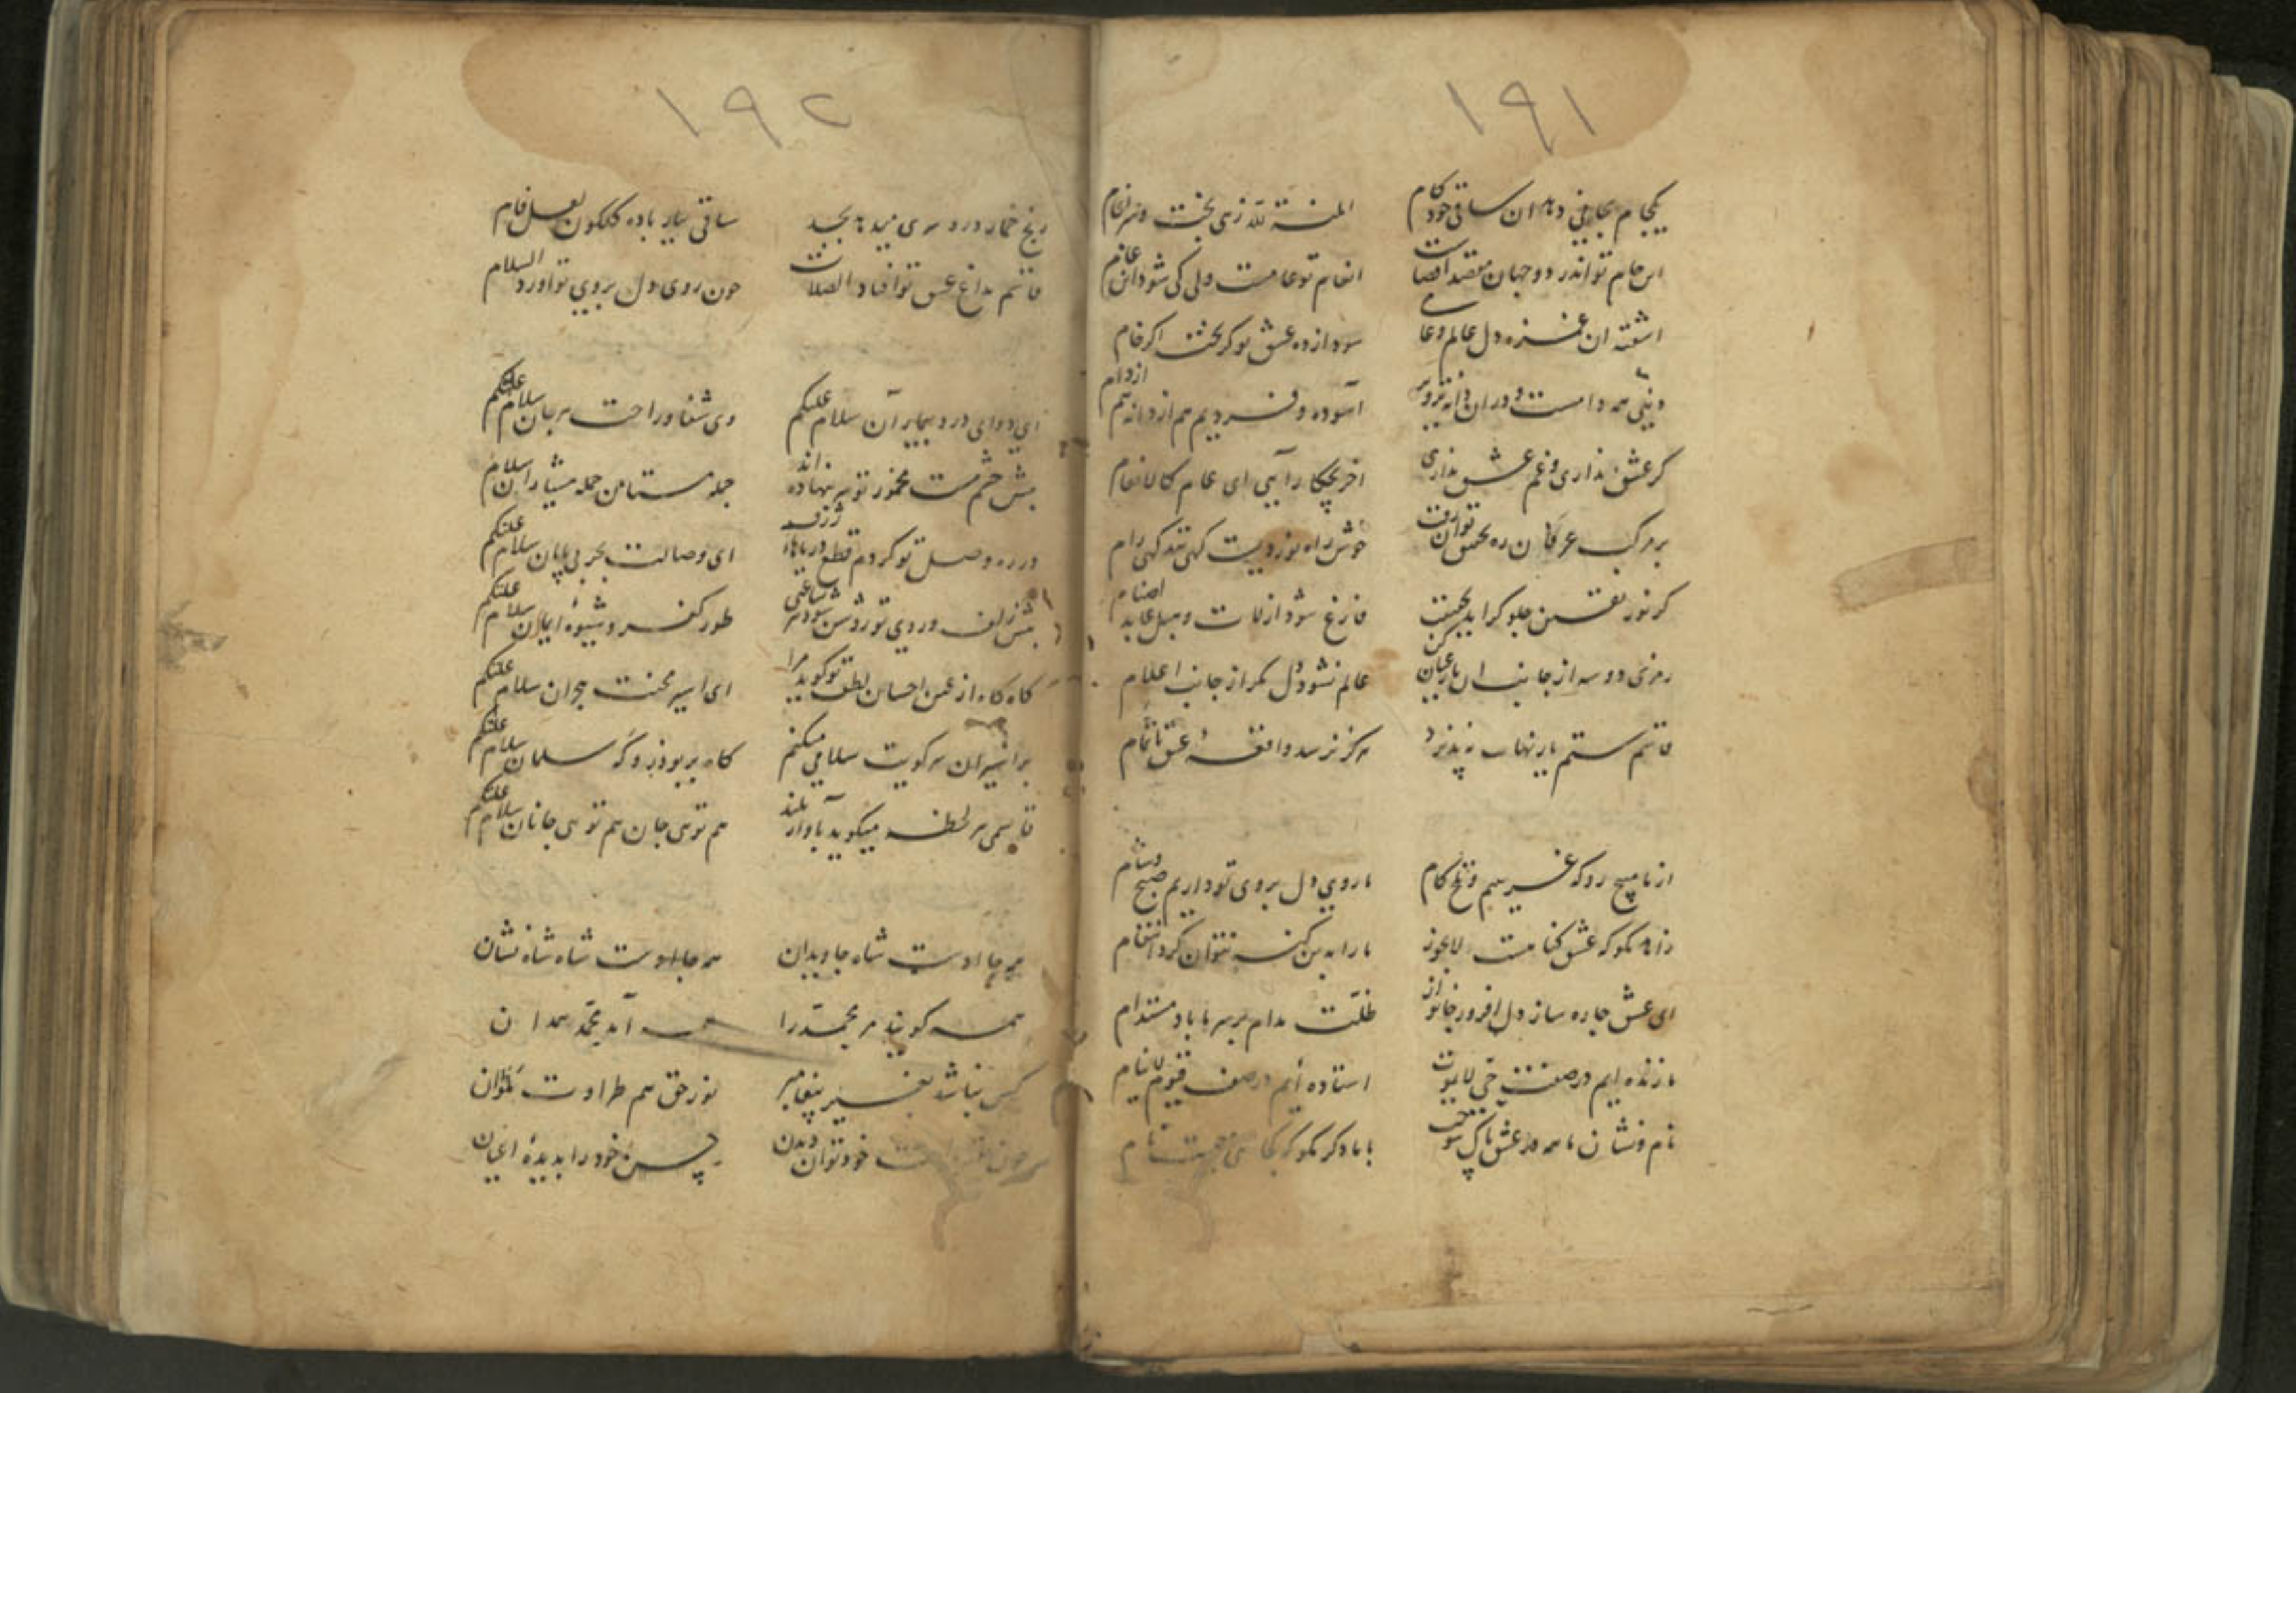 ۱۹۱
یکجام بجامی دهد ان ساقی خودکام
المنة لله زهی بخت
این جام تو اندر دو جهان مقصد اقصاست
انعام تو عامست ولی کی شود ان عام
اشفته ان غمزه دل عالم و عامی
سودازده عشق تو کر بخت اکر خام
دنیی همه دامست و دران دانه تزویر
آسوده و فردیم هم از دانه هم از دام
کر عشق نداری و غم عشق نداری
اخر بچکار آیی ای عام کالانعام
بر مرکب عرفان ره تحقیق توان رفت
خوش راه نوردیست کهی تند کهی رام
کر نور یقین جلوه کر اید بحقیقت
فارغ شود از لات و هبل عابد اصنام
رمزی دو سه از جانب ان یار عیان کن
عالم نشود دل مکر از جانب اعلام
قاسم ستم یار بنهایت نپذیرد
هرکز نرسد واقعه عشق باتمام
از ما مپیچ رو که غریبیم و تلخ کام
ما روی دل بروی تو داریم صبح و شام
زاهد مکو که عشق کناهست لایجوز
ما را بدین کنه نتوان کرد انتقام
ای عشق چاره ساز دل افروز خانه‌ساز
ظلت مدام بر سر ما باد مستدام
ما زنده ایم در صفت حی لایموت
استاده ایم در صف قیوم لاینام
نام و نشان ما همه در عشق پاک سوخت
با ما دکر مکو که کجایی چیست نام
۱۹۲
رنج خمار درد سری میدهد بجد
ساقی بیار باده کلکون لعل فام
قاسم بداغ عشق تو افتاد الصلات
چون روی دل بروی تو اورد السلام
ای دوای درد بیماران سلام علیکم
وی شفا و راحت هر جان سلام علیکم
پیش چشم مست مخمور تو سر بنهاده اند
جمله مستان جمله هشیاران سلام
در ره وصل تو کردم قطع دریاهای ژرف
ای وصالت بحر بی پایان سلام علیکم
پیش زلف و روی تو روشن شود هر ساعتی
طور کفر و شیوه ایمان سلام علیکم
کاه کاه از عین احسان لطف تو کوید مرا
ای اسیر محنت هجران سلام علیکم
بر اسیران سر کویت سلامی میکنم
کاه بر بوذر و که سلمان سلام علیکم
قاسمی هر لحظه میکوید بآواز بلند
هم توی جان هم توی جانان سلام علیکم
هر جا اوست شاه جاویدان
همه جا اوست شاه شاه نشان
همه کویند مر محمد را
همه آمد محمد همدان
کس نباشد بغیر پیغامبر
نور حق هم طراوت
خود توان دیدن
حسن خود را بدیده اعیان